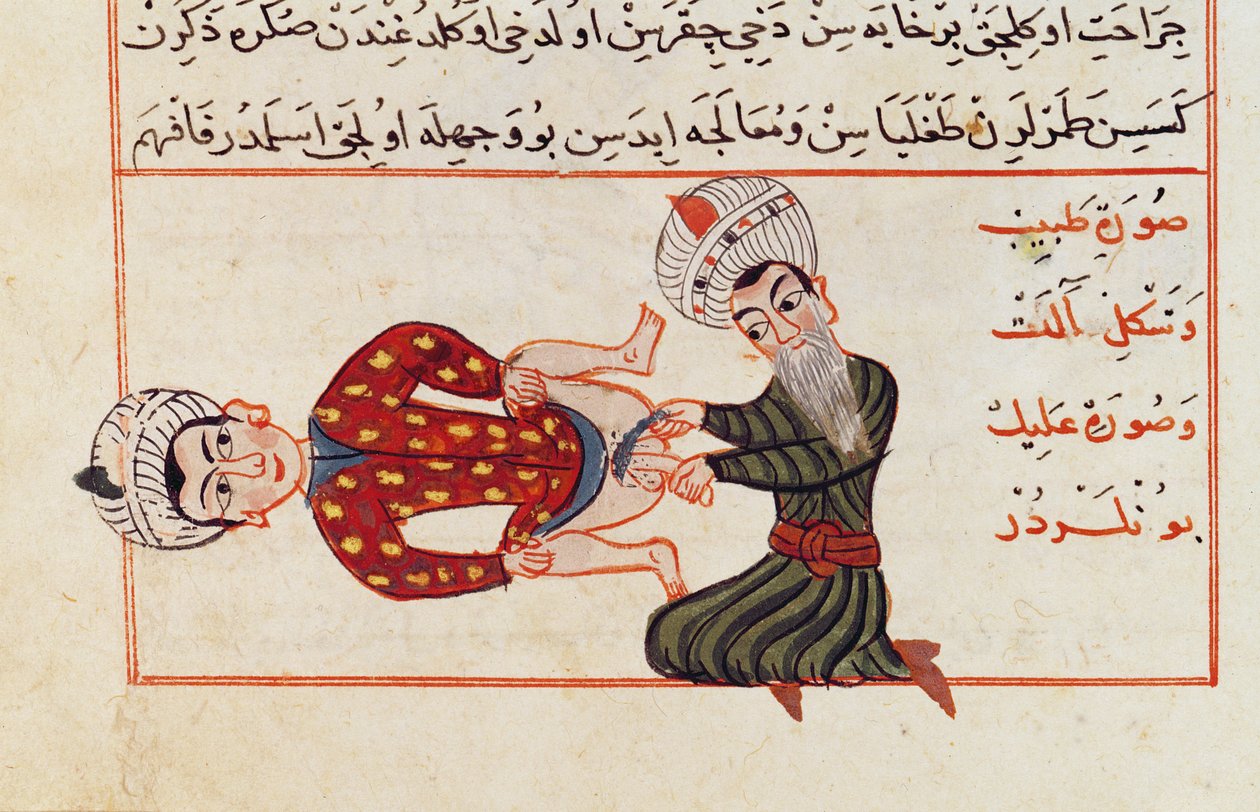 جِرَاحَتِ اوكِلِجَقْ بِرْ خَايَه سِنْ دَخِي چِقَرَسِنْ اولدخى اوكلدغندن صكره ذكرن
كَسَسِن وَمُعَالَجَه اِيدَسِن بُو وَجهِله اولِجَقْ اسلمدر فَافهَم
صُورَةِ طَبِيبْ
وَشَكلِ آلَتْ
وَصُورَةِ عَلِيلْ
بُونْلَرْدُرْ